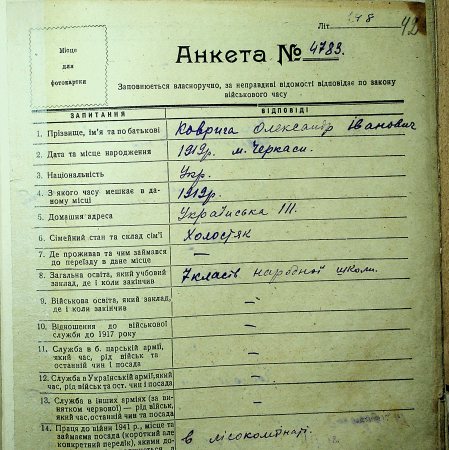 Літ.
42
Місце
для
фотокартки
Анкета № 4783.
Заповнюється власноручно, за неправдиві відомості відповідає по закону
військового часу
ЗАПИТАННЯ ВІДПОВІДІ
1. Прізвище, ім'я та по батькові Коврига Олександр Іванович
2. Дата та місце народження 1919р. м. Черкаси.
3. Національність Укр.
4. З якого часу мешкає в да-
ному місці 1919р.
5. Домашня адреса Українська 111.
6. Сімейний стан та склад сім'ї Холостяк
7. Де проживав та чим займався
до переїзду в дане місце —
8. Загальна освіта, який учбовий
заклад, де і коли закінчив 7 класів народної школи.
9. Військова освіта, який заклад,
де і коли закінчив —
10. Відношення до військової
служби до 1917 року —
11. Служба в б. царській армії,
який час, рід військ та
останній чин і посада —
12. Служба в Українській армії, який
час, рід військ та ост. чин і посада —
13. Служба в інших арміях (за ви-
нятком червоної) — рід військ,
який час, останній чин та посада —
14. Праця до війни 1941 р., місце та
займаєма посада (короткий але
конкретний перелік), якими до- в лісокомбінаті.